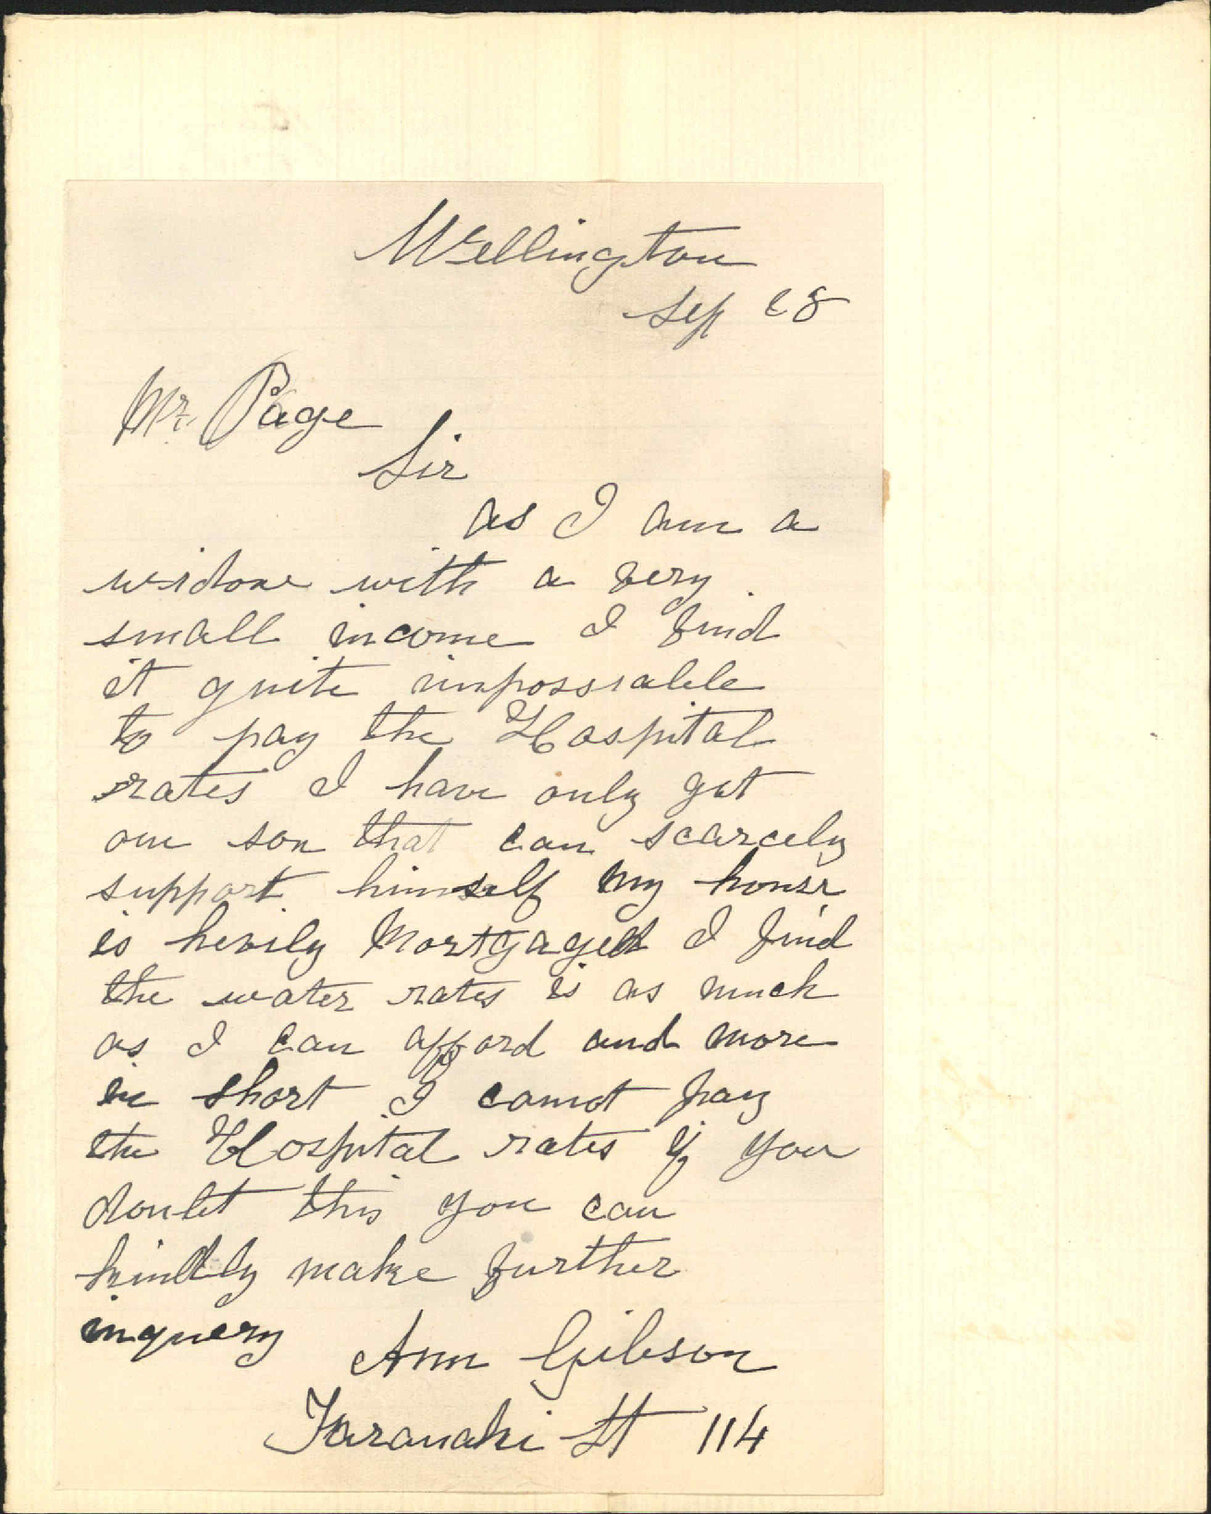 Wellington
Sep 28
Mr. Page
Sir
as I am a
widow with a very
small income I find
it quite impossiable
to pay the Hospital
rates I have only got
one son that can scarcely
support himself My house
is hevily Mortgaged I find
the water rates is as much
as I can afford and more
in short I cannot pay
the Hospital rates if you
doubt this you can
kindly make further
inquery
Ann Gibson
Taranaki St 114